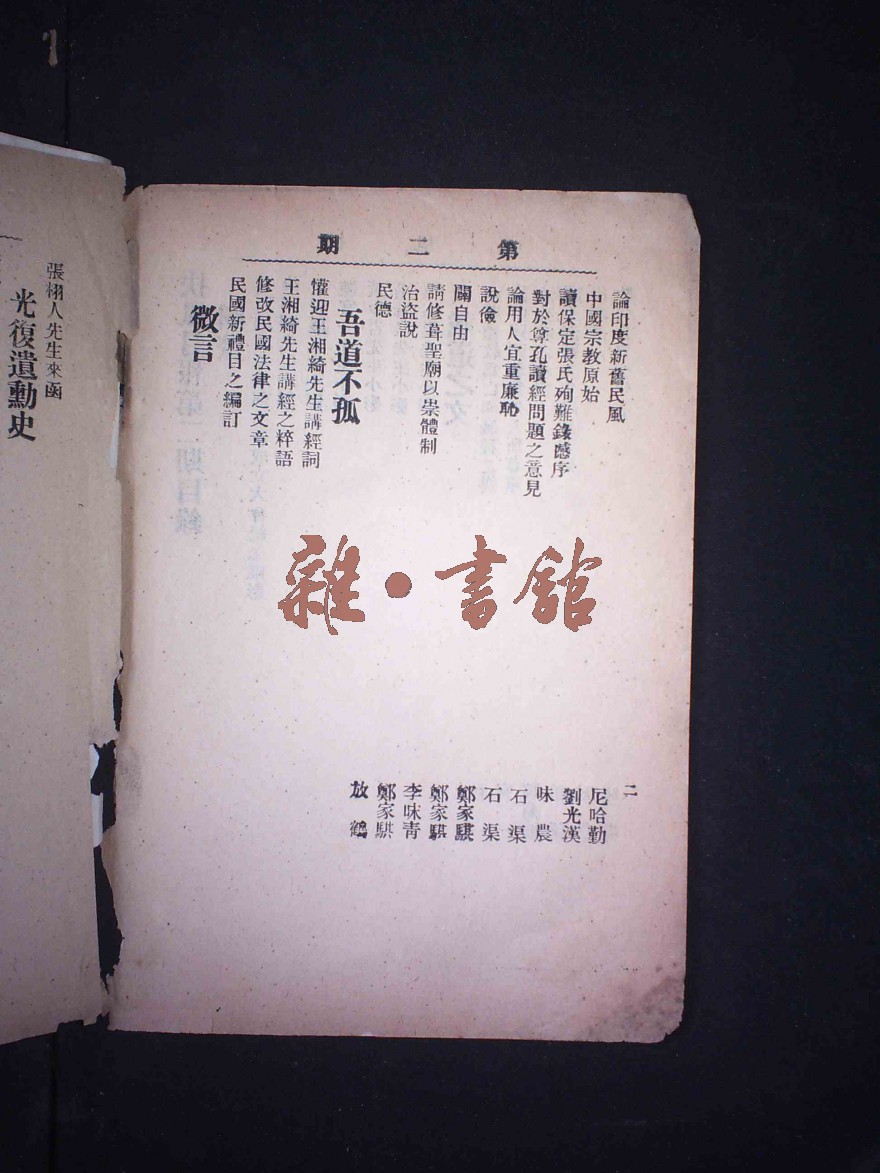 第二期
論印度新舊民風
尼哈勤
中國宗教原始
劉光漢
讀保定張氏殉難錄感序
味農
對於尊孔讀經問題之意見
石渠
論用人宜重廉恥
石渠
說儉
鄭家騏
闢自由
鄭家騏
請修葺聖廟以崇體制
李味青
治盜說
鄭家騏
民德
放鶴
吾道不孤
懽迎王湘綺先生講經詞
王湘綺先生講經之粹語
修改民國法律之文章
民國新禮目之編訂
微言
二
張栩人先生來函
光復遺勳史
雜·書館